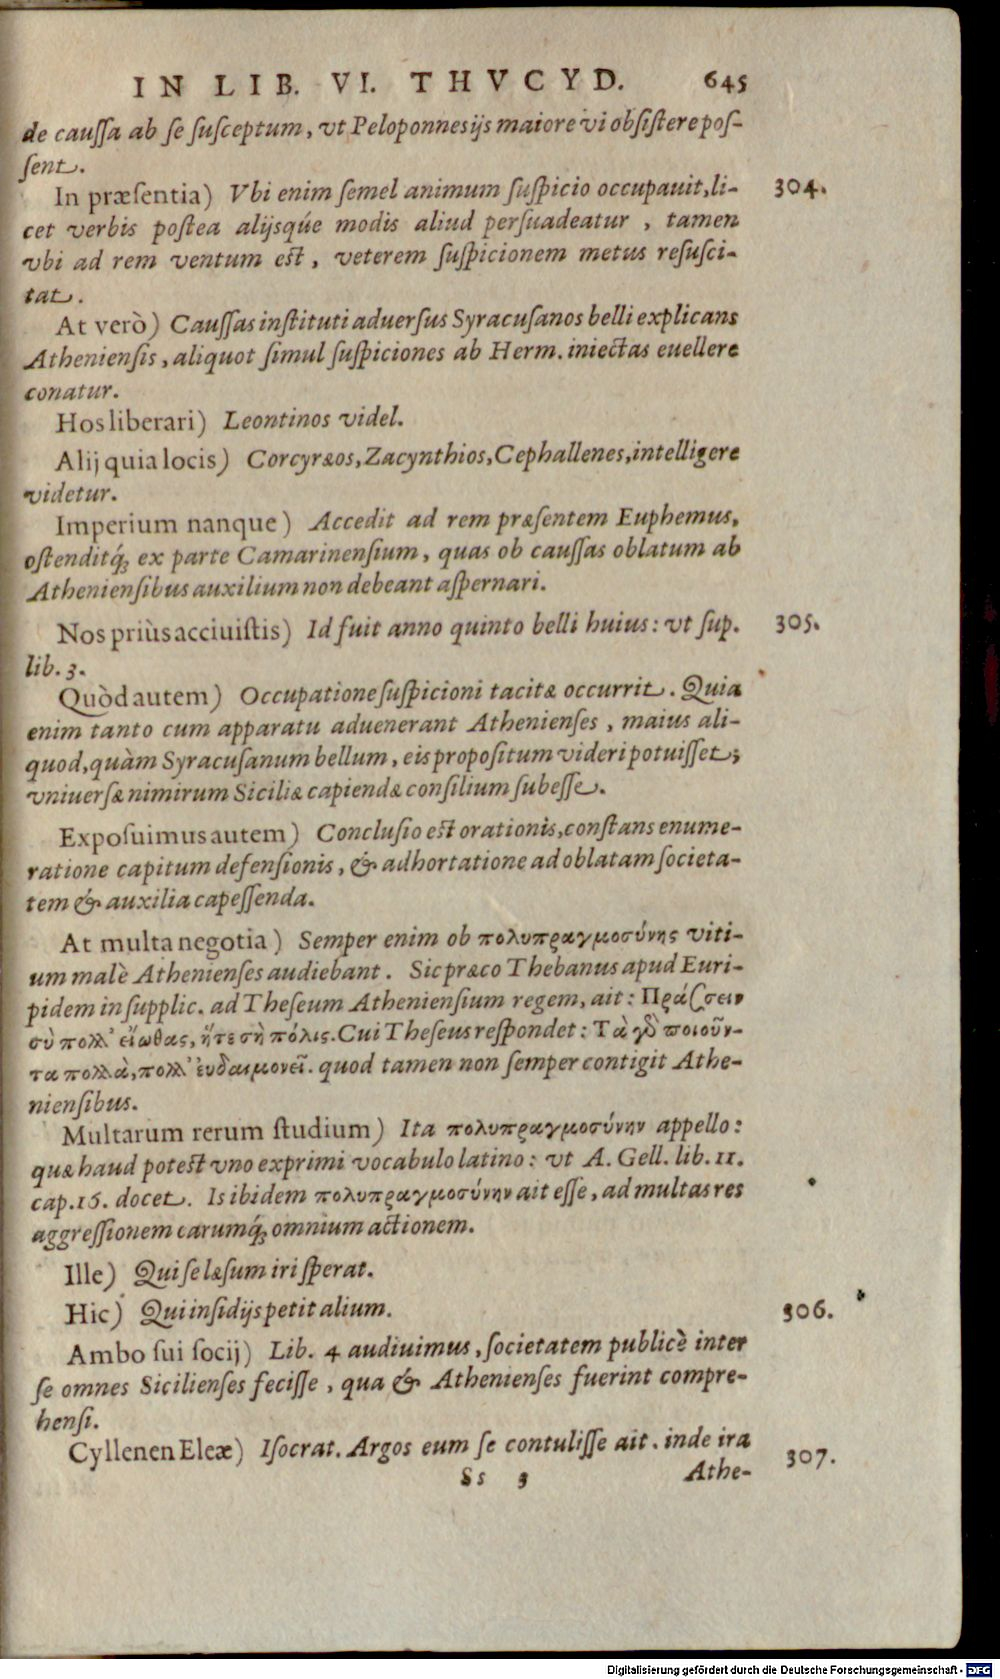 IN LIB. VI. THVCYD. 645
de caussa ab se susceptum, vt Peloponnesijs maiore vi obsistere pos-
sent.
In præsentia) Vbi enim semel animum suspicio occupauit, li- 304.
cet verbis postea alijsqúe modis aliud persuadeatur, tamen
vbi ad rem ventum est, veterem suspicionem metus resusci-
tat.
At verò) Caussas instituti aduersus Syracusanos belli explicans
Atheniensis, aliquot simul suspiciones ab Herm. iniectas euellere
conatur.
Hos liberari) Leontinos videl.
Alij quia locis) Corcyræos, Zacynthios, Cephallenes, intelligere
videtur.
Imperium nanque) Accedit ad rem præsentem Euphemus,
ostenditq́; ex parte Camarinensium, quas ob caussas oblatum ab
Atheniensibus auxilium non debeant aspernari.
Nos priùs acciuistis) Id fuit anno quinto belli huius: vt sup. 305.
lib. 3.
Quòd autem) Occupatione suspicioni tacitæ occurrit. Quia
enim tanto cum apparatu aduenerant Athenienses, maius ali-
quod, quàm Syracusanum bellum, eis propositum videri potuisset;
vniuersæ nimirum Siciliæ capiendæ consilium subesse.
Exposuimus autem) Conclusio est orationis, constans enume-
ratione capitum defensionis, & adhortatione ad oblatam societa-
tem & auxilia capessenda.
At multa negotia) Semper enim ob πολυπραγμοσύνης viti-
um malè Athenienses audiebant. Sic præco Thebanus apud Euri-
pidem in supplic. ad Theseum Atheniensium regem, ait: Πράσσειν
σὺ πολλ' εἴωθας, ἥτε σὴ πόλις. Cui Theseus respondet: Τὰ γδ ποιοῦν-
τα πολλὰ, πολλ' ἐυδαιμονεῖ. quod tamen non semper contigit Athe-
niensibus.
Multarum rerum studium) Ita πολυπραγμοσύνην appello:
quæ haud potest vno exprimi vocabulo latino: vt A. Gell. lib. 11.
cap. 16. docet. Is ibidem πολυπραγμοσύνην ait esse, ad multas res
aggressionem earumq́; omnium actionem.
Ille) Qui se læsum iri sperat.
Hic) Qui insidijs petit alium. 306.
Ambo sui socij) Lib. 4 audiuimus, societatem publicè inter
se omnes Sicilienses fecisse, qua & Athenienses fuerint compre-
hensi.
Cyllenen Eleæ) Isocrat. Argos eum se contulisse ait. inde ira 307.
Ss 3 Athe-
Digitalisierung gefördert durch die Deutsche Forschungsgemeinschaft - DFG